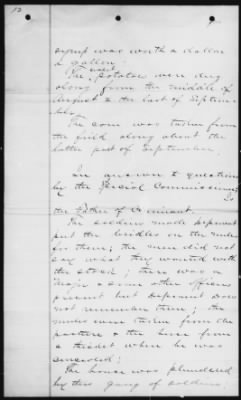 12
syrup was worth a dollar
a gallon.
The sweet potatoes were dug
along from the middle of
August to the last of Septem-
ber.
The corn was taken from
the field along about the
latter part of September.
In answer to questions
by the Special Commissioner,
the Father of Claimant.
The soldiers made deponent
put the bridles on the mules
for them; the men did not
say what they wanted with
the stock; there was a
Major & some other officers
present but deponent does
not remember them; the
mules were taken from the
pasture & the horse from
a thicket where he was
concealed;
The house was plundered
by this gang of soldiers;